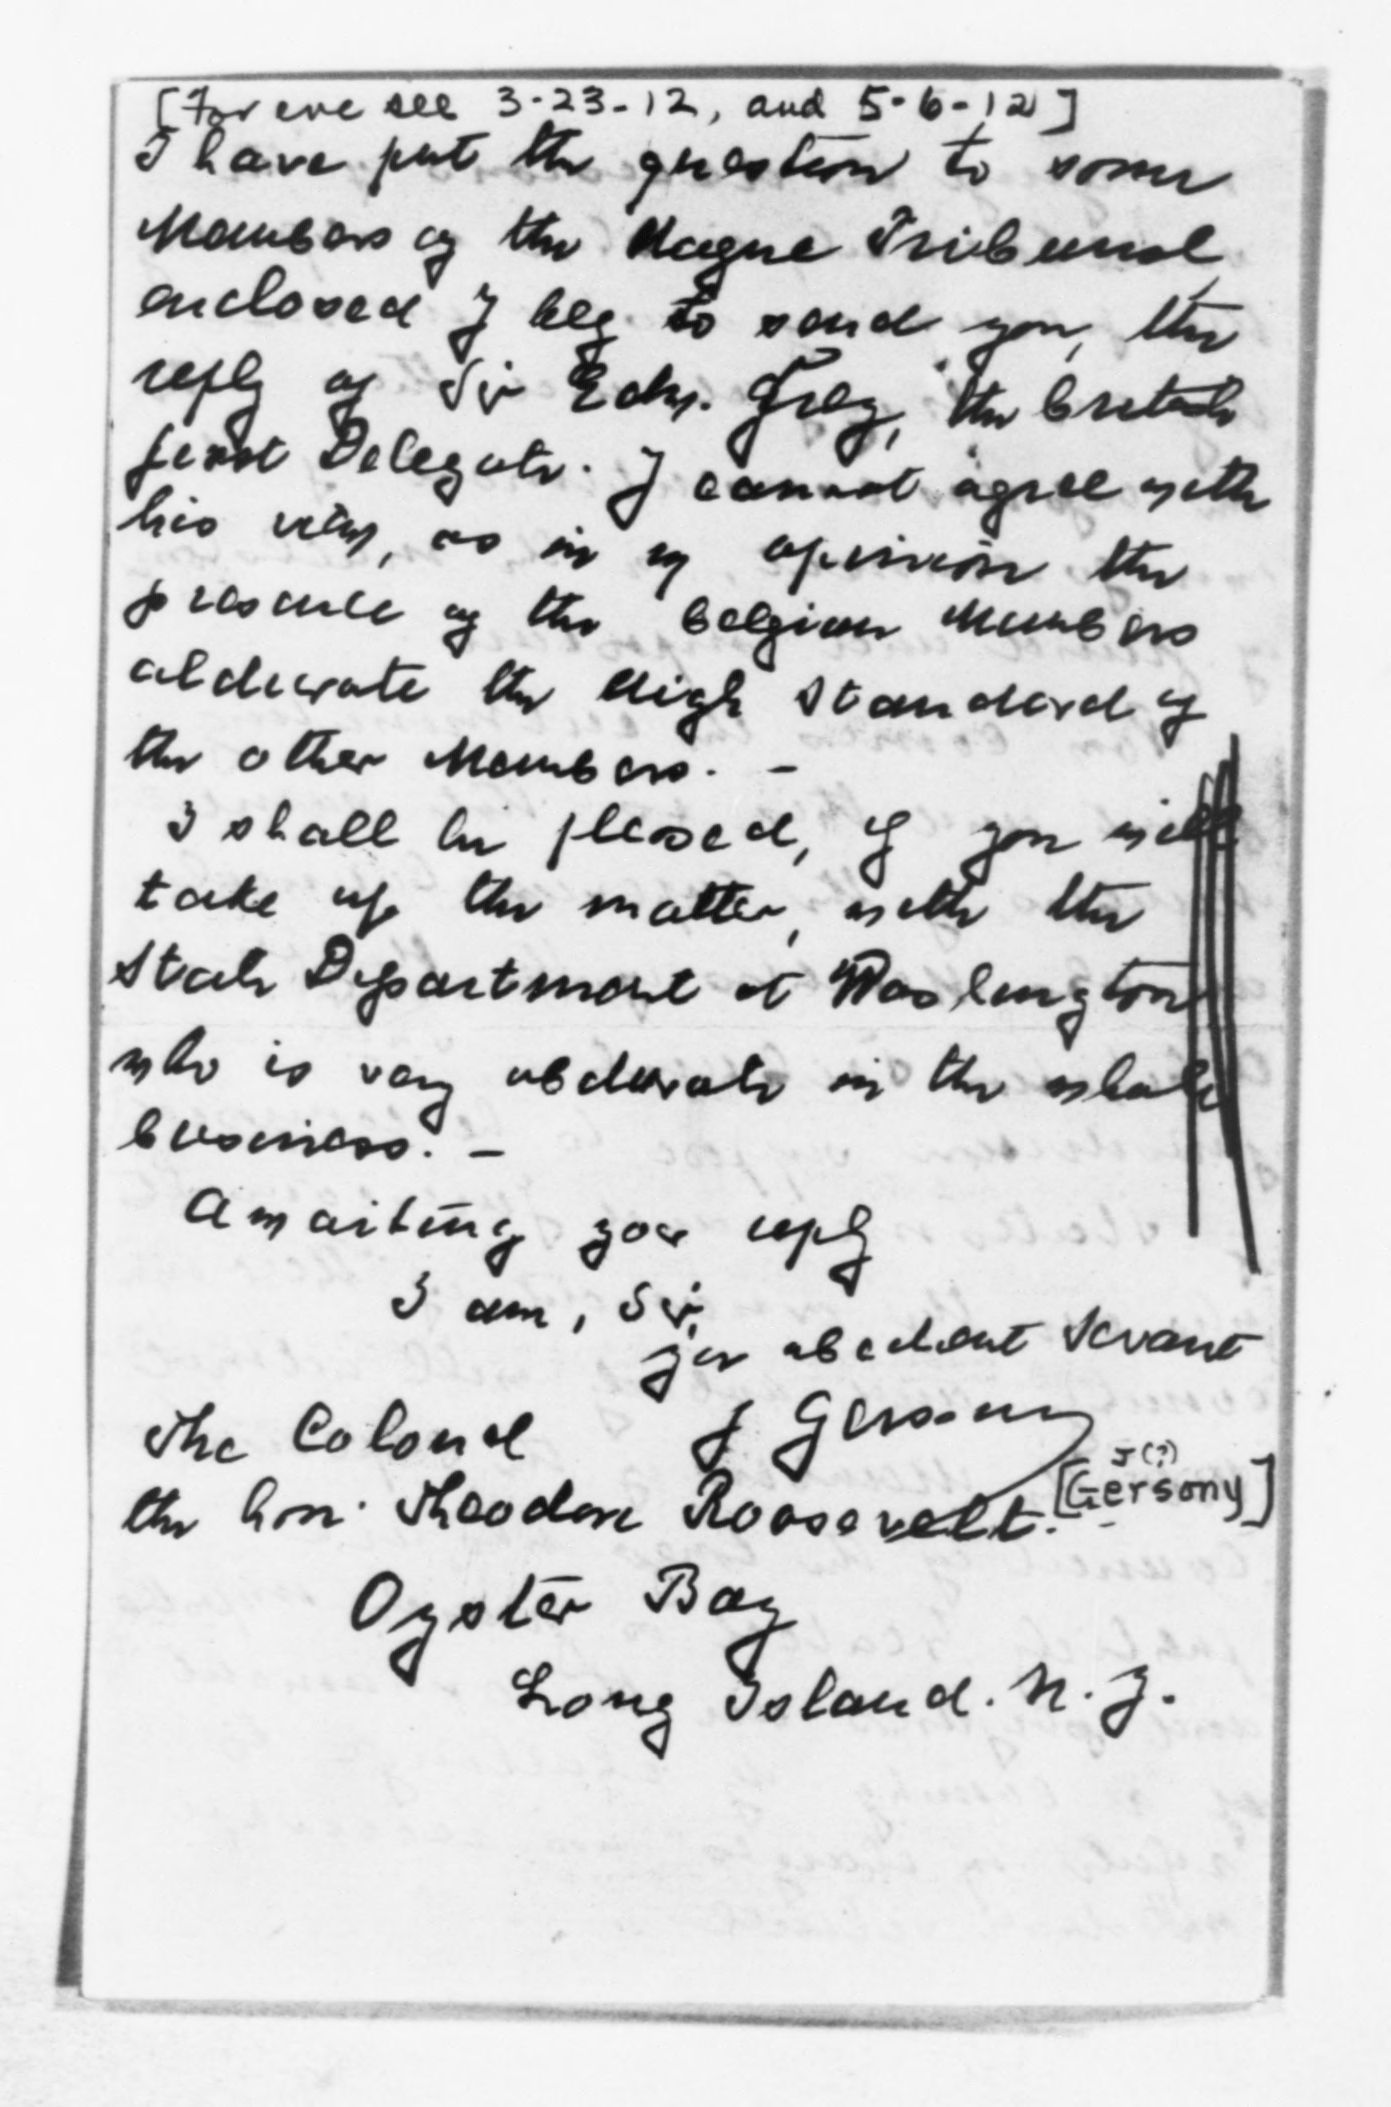 [For enc see 3-23-12, and 5-6-12]
I have put the question to some
Members of the Hague Tribunal,
enclosed I beg to send you, the
reply of Sir Edw. Grey, the british
first Delegate. I cannot agree with
his view, as in my opinion the
presence of the belgian Members
the High Standard of
the other Members. -
I shall be pleased, if you will
take up the matter, with the
State Department at Washington
who is very obdurate in the whole
business. -
Awaiting your reply
I am, Sir,
your obedient Servant
J Gersony
The Colonel
J(?)
[Gersony]
the hon. Theodore Roosevelt.
Oyster Bay
Long Island. N. Y.